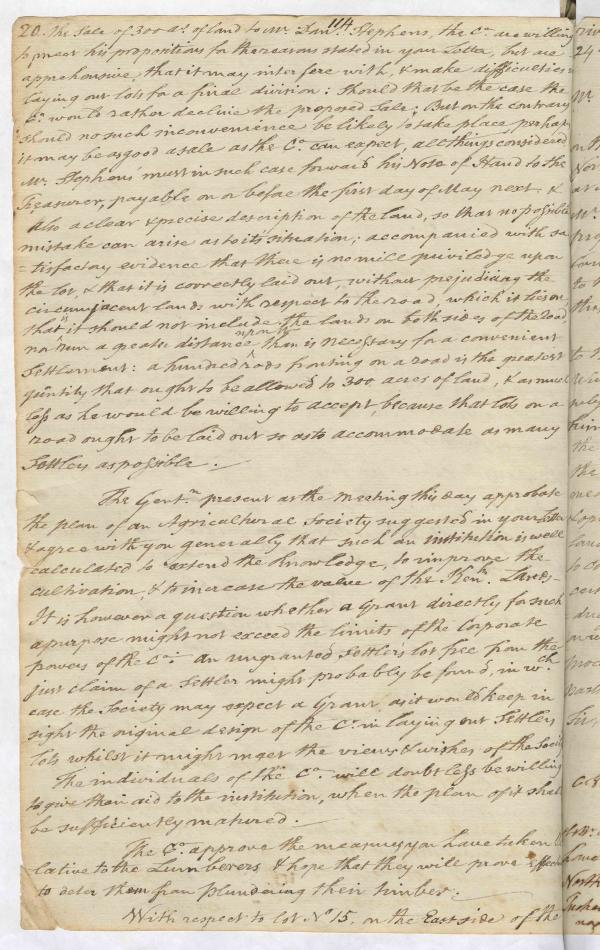 114
20. The Sale of 300 as. of land to Mr. Danl. Stephens, the Co. are willing
to meet his propositions for the reasons stated in your Letter, but are
apprehensive, that it may interfere with, & make difficulties in
laying out lots for a final division: Should that be the case the
Co. would rather decline the proposed Sale; But on the contrary
should no such inconvenience be likely to take place, perhaps
it may be as good a sale as the Co. can expect, all things considered
Mr. Stephens must in such case forward his Note of Hand to the
Treasurer, payable on or before the first day of May next, &
also a clear & precise description of the land, so that no possible
mistake can arise as to its situation; accompanied with sa
=tisfactory evidence that there is no mill priviledge upon
the lot, & that it is correctly laid out, without prejudicing the
circumjacent lands with respect to the road, which it lies on,
that it should not include the lands on both sides of the road
nor run a greater distance upon it than is necessary for a convenient
Settlement: a hundred rods fronting on a road is the greatest
quantity that ought to be allowed to 300 acres of land, & as much
less as he would be willing to accept, because that lots on a
road ought to be laid out so as to accommodate as many
Settlers as possible.
The Gentn. present at the meeting this day approbate
the plan of an Agricultural Society suggested in your Letter
& agree with you generally that such an institution is well
calculated to extend the knowledge, to improve the
cultivation, & to increase the value of the Kenk. Lands—
It is however a question whether a Grant directly for such
a purpose might not exceed the limits of the Corporate
powers of the Co. An ungranted Settlers lot free from the
just claim of a Settler might probably be found, in wch.
case the Society may expect a Grant, as it would keep in
sight the original design of the Co. in laying out Settlers
lots whilst it might meet the views & wishes of the Society
The individuals of the Co. will doubtless be willing
to give their aid to the institution, when the plan of it shall
be sufficiently matured.
The Co. approve the measures you have taken
lative to the Lumberers & hope that they will prove effectual
to deter them from plundering their timber.
With respect to lot No. 15, on the East side of the